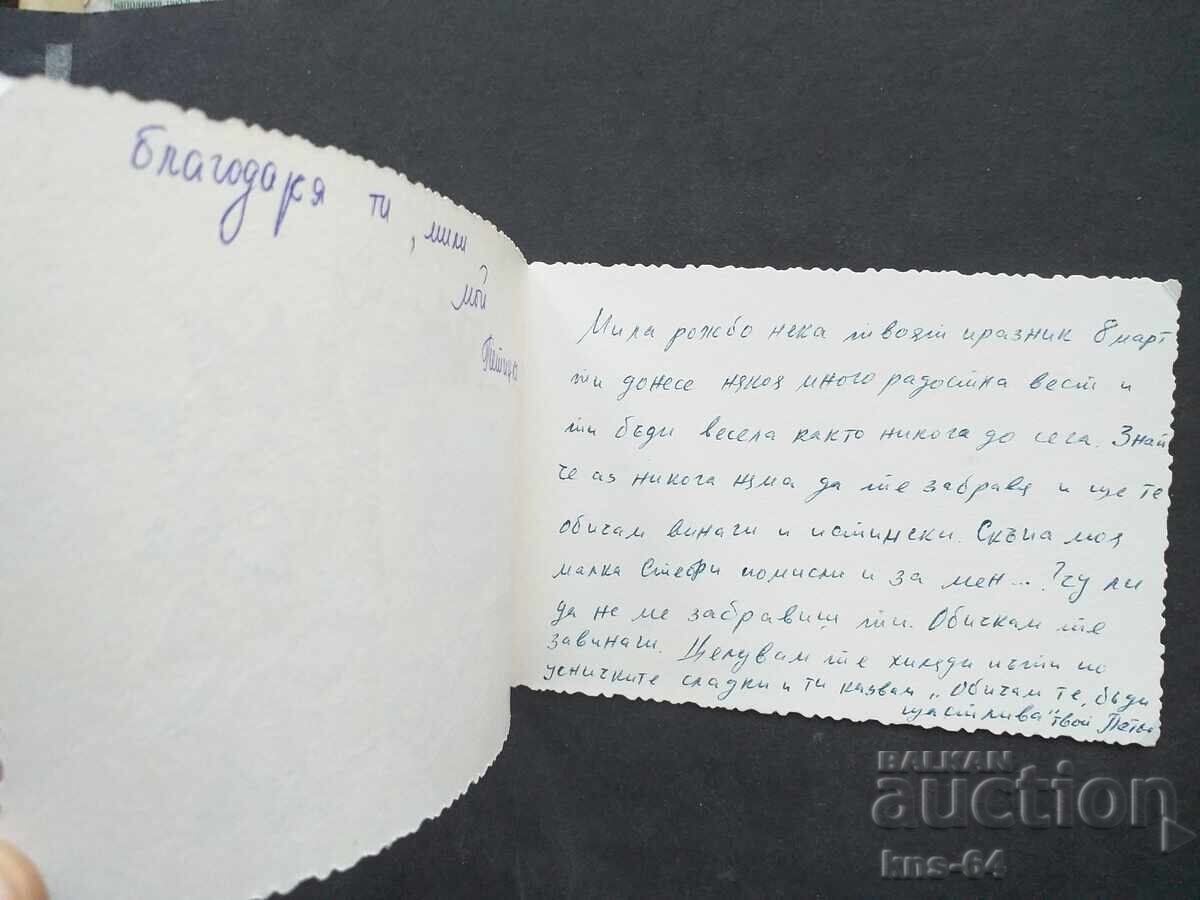 Благодаря ти, мили
мой
Мила рожбо нека твоят празник 8 март
ти донесе някоя много радостна вест и
ти бъди весела както никога до сега. Знай
че аз никога няма да те забравя и ще те
обичам винаги и истински. Скъпа моя
малка Стефи помисли и за мен...? Чу ли
да не ме забравиш ти. Обичкам те
завинаги. Целувам те хиляди пъти по
усничките сладки и ти казвам „Обичам те, бъди
щастлива" твой
BALKAN
auction
kns-64